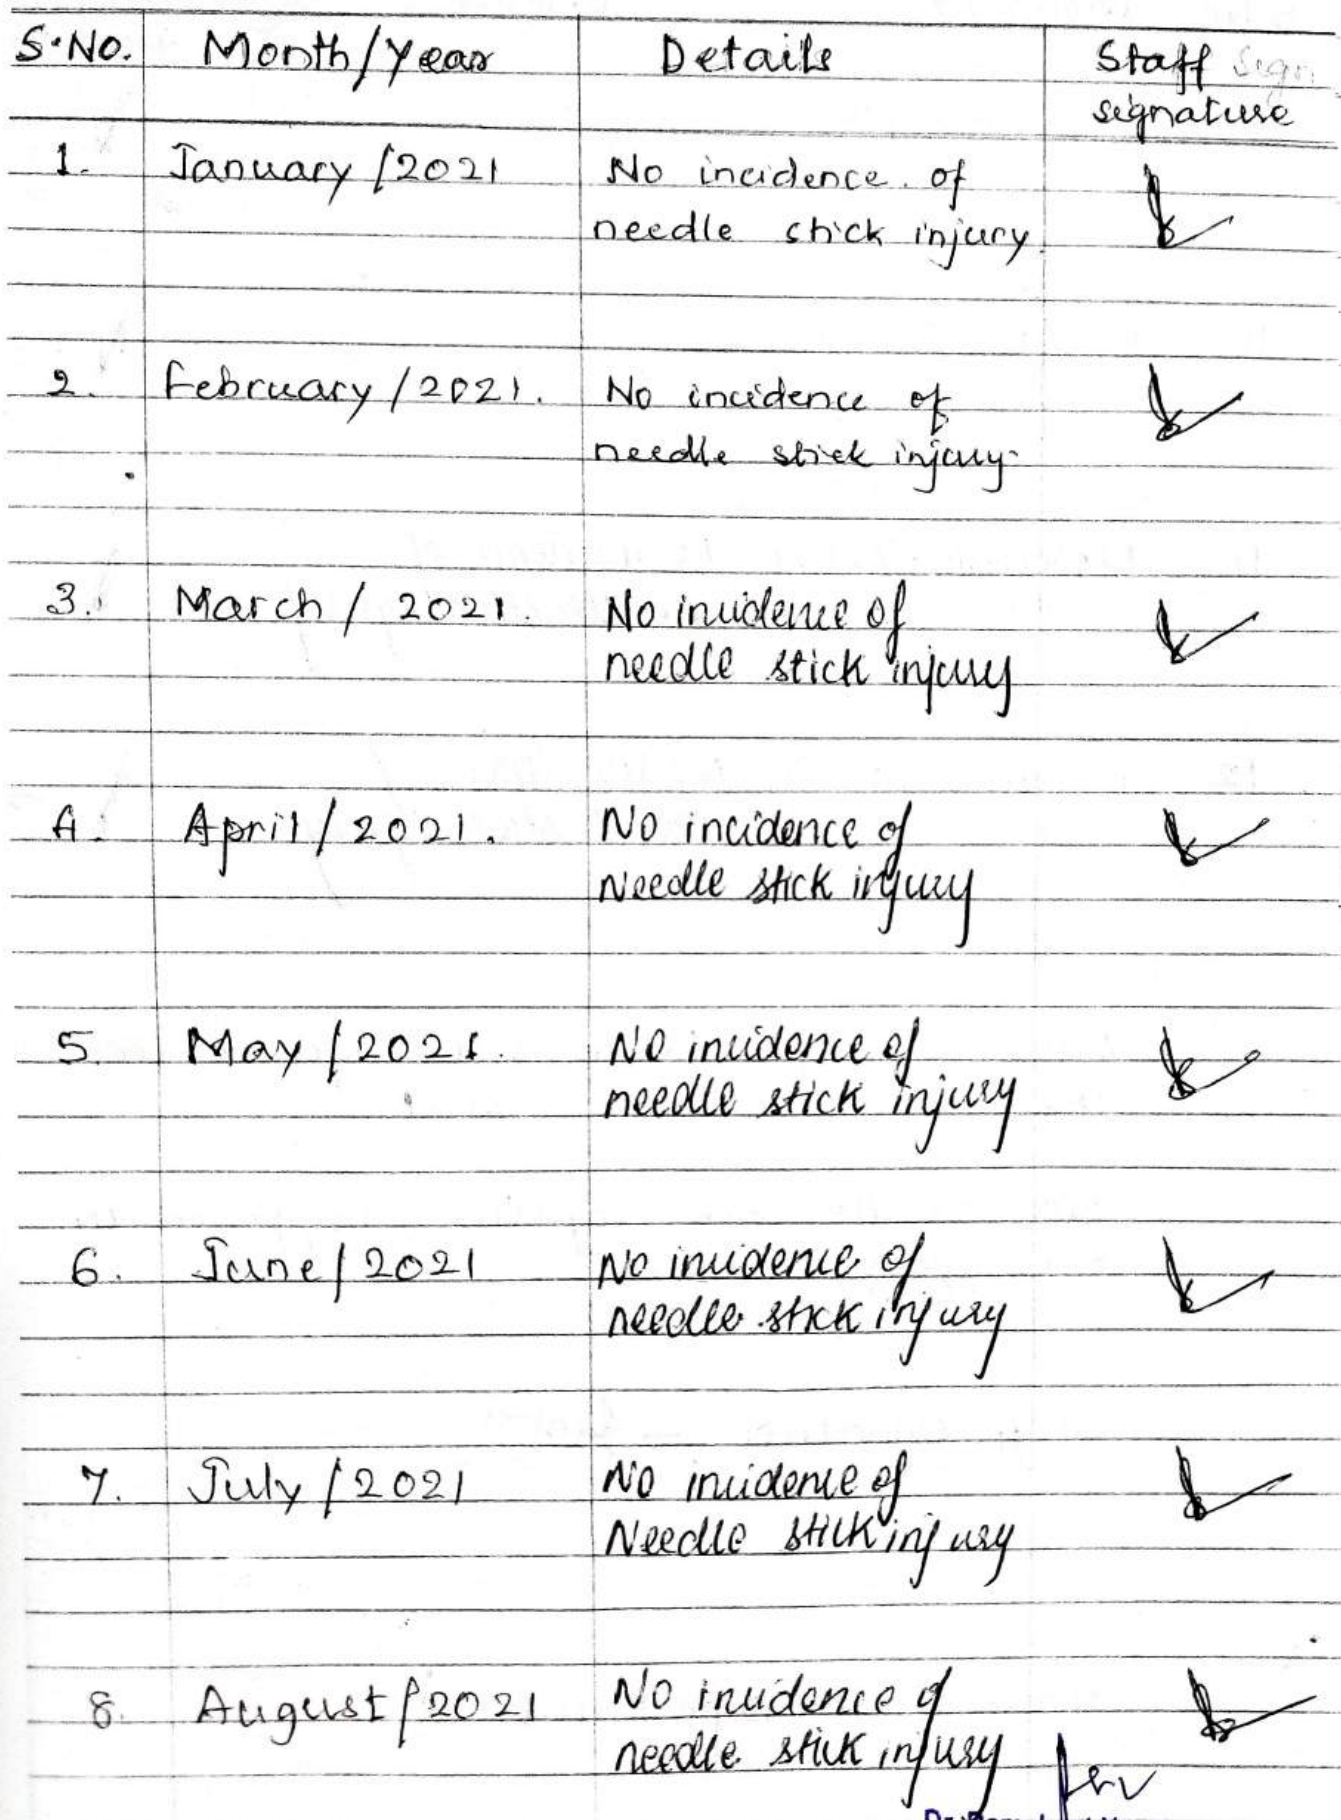 S.No. Month/Year Details Staff
signature
1. January /2021 No incidence of
needle stick injury
2. February /2021. No incidence of
needle stick injury.
3. March / 2021. No incidence of
needle stick injury
4. April / 2021. No incidence of
Needle stick injury
5. May / 2021. No incidence of
needle stick injury
6. June / 2021 No incidence of
needle stick injury
7. July / 2021 No incidence of
Needle stick injury
8. August / 2021 No incidence of
needle stick injury